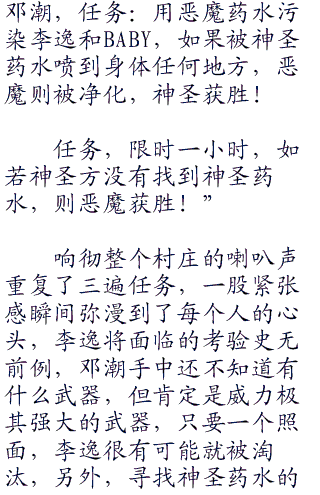 邓潮，任务：用恶魔药水污
染李逸和BABY，如果被神圣
药水喷到身体任何地方，恶
魔则被净化，神圣获胜！
任务，限时一小时，如
若神圣方没有找到神圣药
水，则恶魔获胜！”
响彻整个村庄的喇叭声
重复了三遍任务，一股紧张
感瞬间弥漫到了每个人的心
头，李逸将面临的考验史无
前例，邓潮手中还不知道有
什么武器，但肯定是威力极
其强大的武器，只要一个照
面，李逸很有可能就被淘
汰，另外，寻找神圣药水的